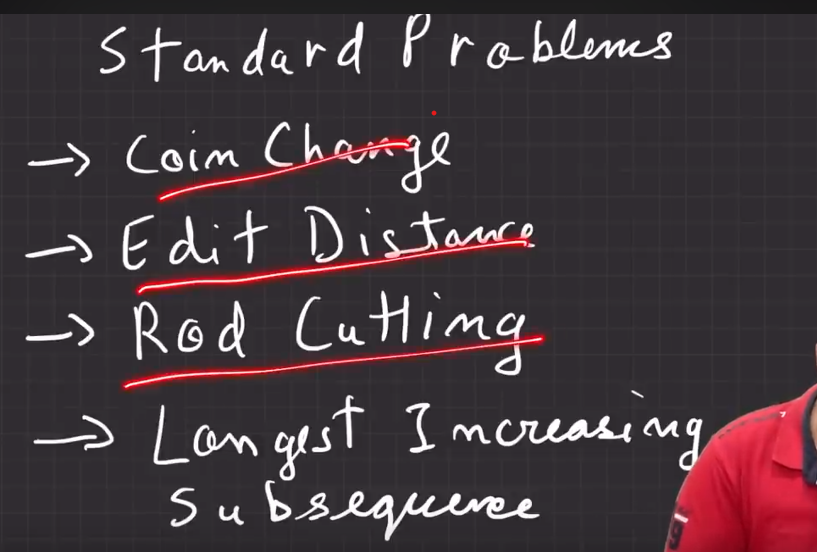 Standard Problems
→ Coin Change
→ Edit Distance
→ Rod Cutting
→ Longest Increasing
Subsequence